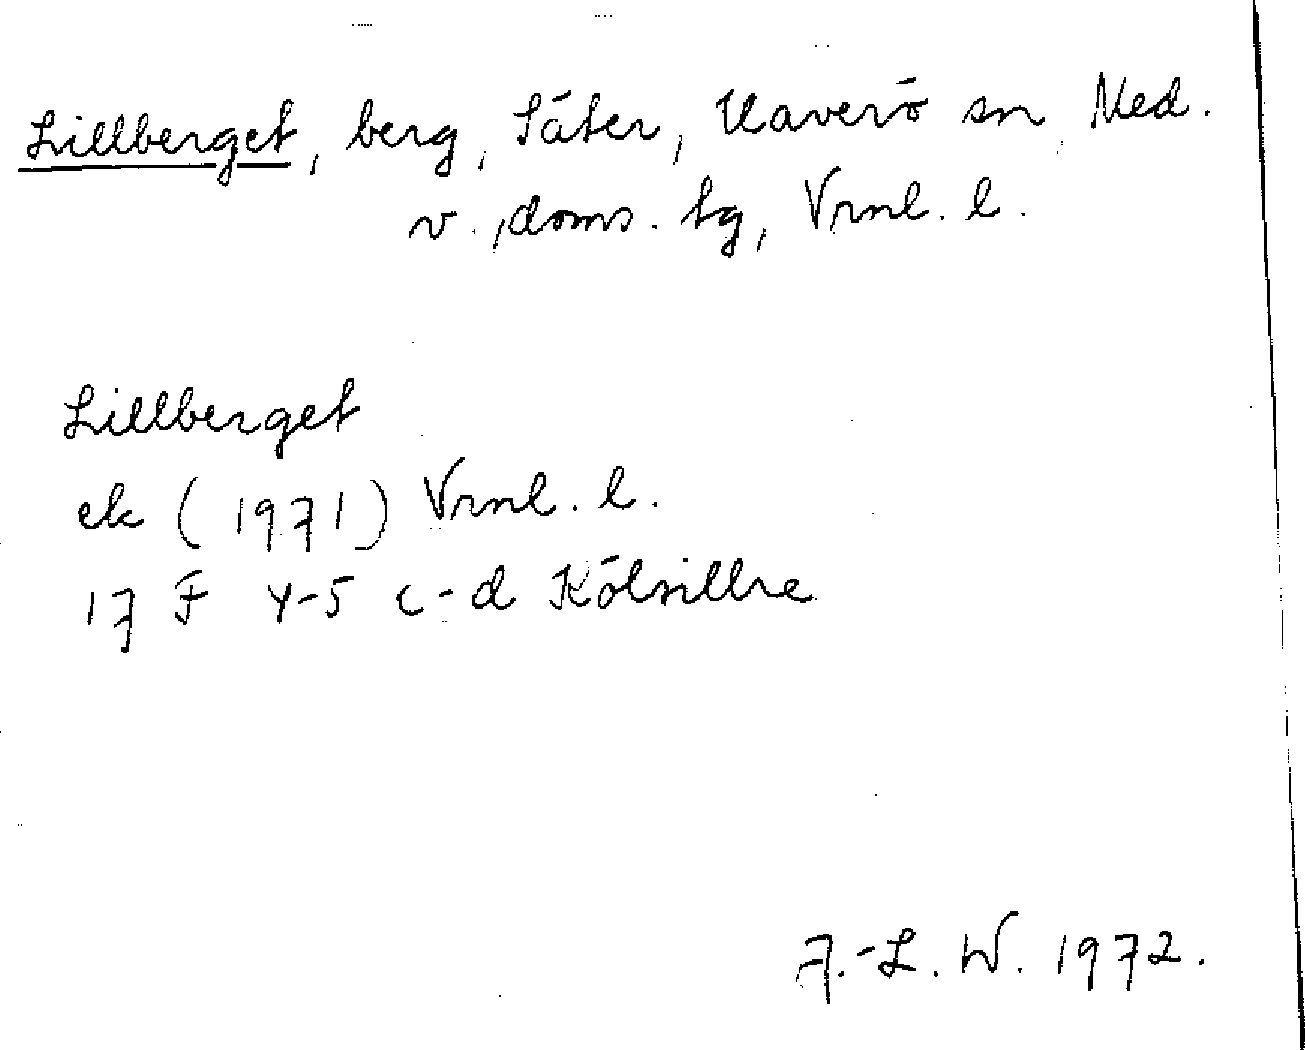 Lillberget, berg, Säter, Haverö sn, Med.
v., doms. tg, Vrnl. l.
Lillberget
ek (1971) Vrnl. l.
17 F 4-5 c-d Kölsillre
A.-L. W. 1972.